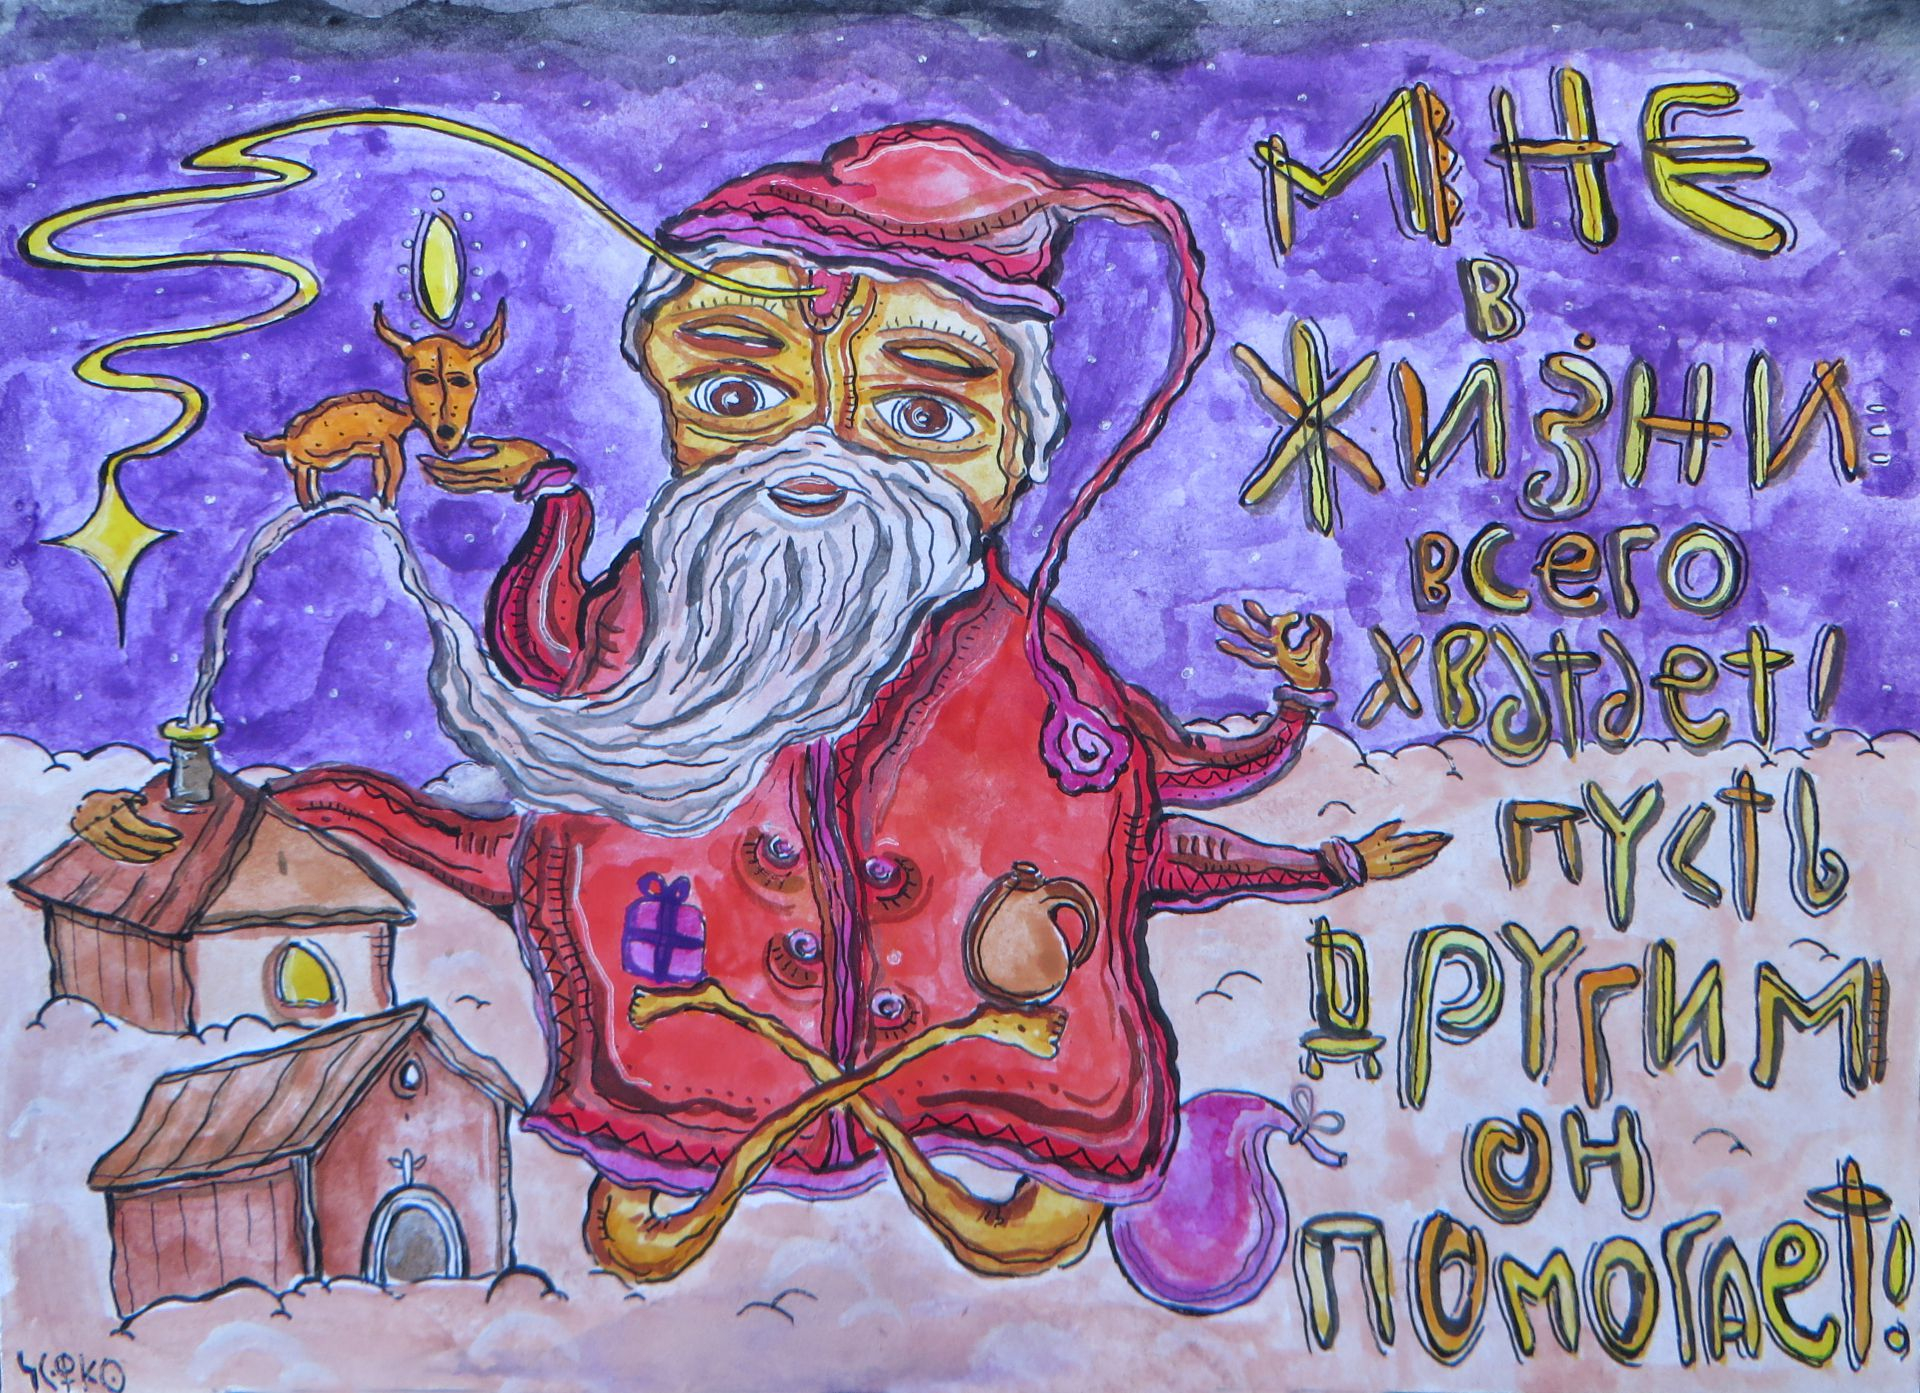 МНЕ
В
ЖИЗНИ
ВСЕГО
ХВАТАЕТ!
ПУСТЬ
ДРУГИМ
ОН
ПОМОГАЕТ!